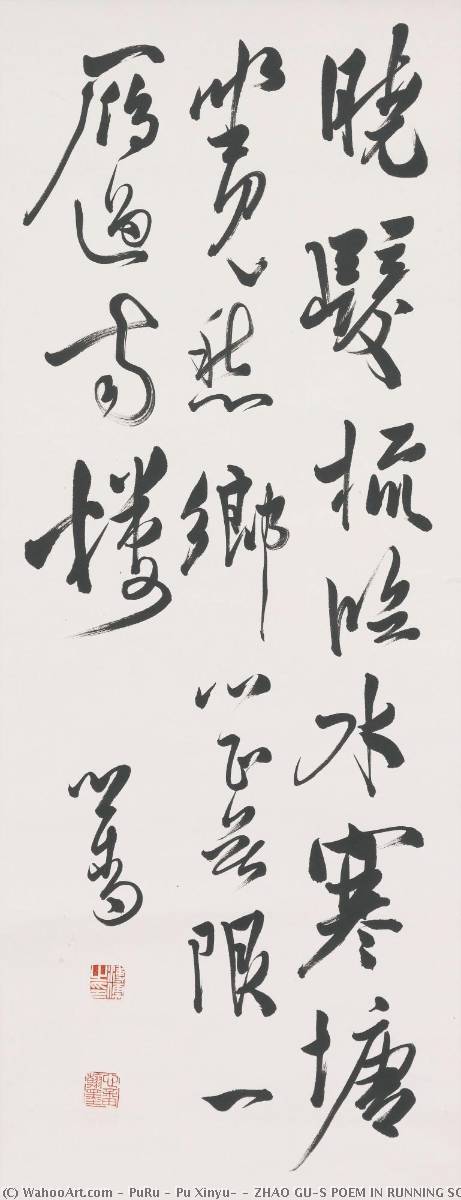 曉髮梳臨水寒塘
坐見愁鄉心正無限一
雁過南樓
心畬
溥儒之印
心畬翰墨
(C) WahooArt.com - PuRu - Pu Xinyu- - ZHAO GU-S POEM IN RUNNING SC